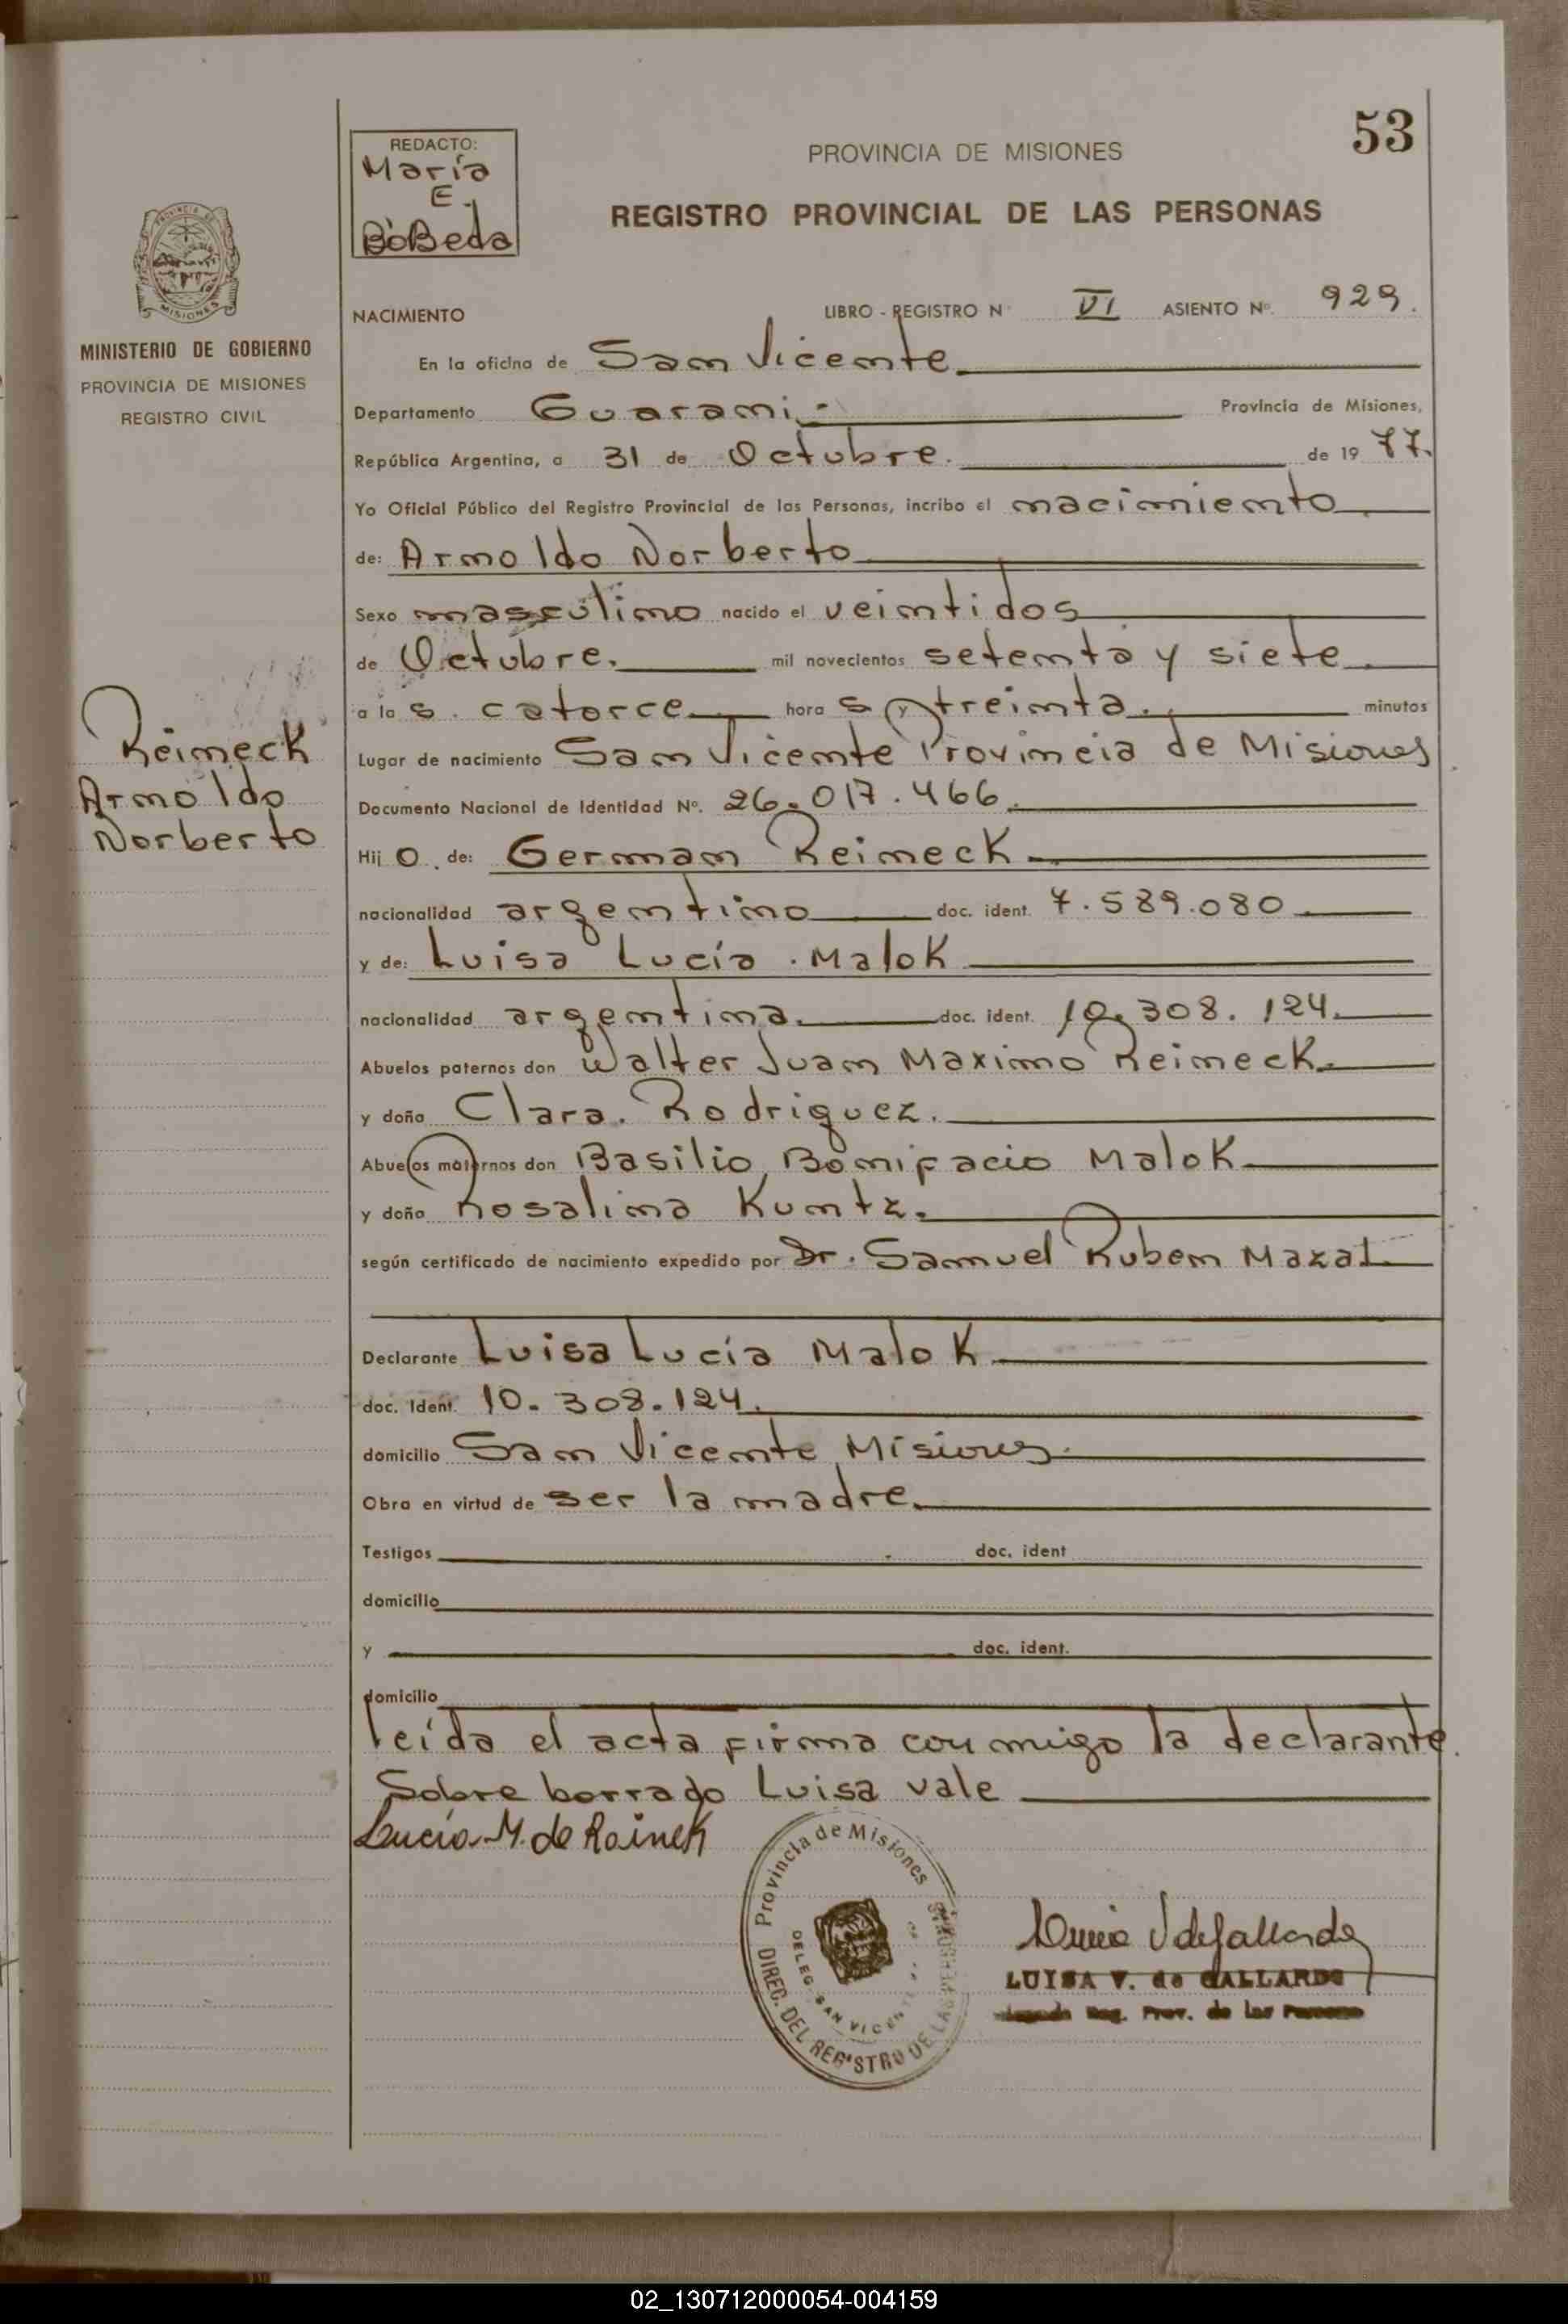 53
REDACTO:
María
E.
BòBeda
PROVINCIA DE MISIONES
REGISTRO PROVINCIAL DE LAS PERSONAS
MISIONES
MINISTERIO DE GOBIERNO
PROVINCIA DE MISIONES
REGISTRO CIVIL
NACIMIENTO LIBRO - REGISTRO N° VI ASIENTO N°. 929.
En la oficina de San Vicente.
Departamento Guarani.- Provincia de Misiones,
República Argentina, a 31 de Octubre. de 19 77.
Yo Oficial Público del Registro Provincial de las Personas, incribo el nacimiento.
de: Arnoldo Norberto
Sexo masculino nacido el veintidos
de Octubre. mil novecientos setenta y siete.
a las. catorce horas y treinta. minutos
Reineck
Arnoldo
Norberto
Lugar de nacimiento San Vicente Provincia de Misiones
Documento Nacional de Identidad N°. 26.017.466.
Hijo. de: German Reineck.
nacionalidad argentino doc. ident. 7.589.080
y de: Luisa Lucía . Malok
nacionalidad argentina. doc. ident. 10.308.124.
Abuelos paternos don Walter Juan Maximo Reineck.
y doña Clara. Rodriguez.
Abuelos maternos don Basilio Bonifacio Malok
y doña Rosalina Kuntz.
según certificado de nacimiento expedido por Dr. Samuel Ruben Mazal
Declarante Luisa Lucía Malok
doc. ident. 10.308.124.
domicilio San Vicente Misiones.
Obra en virtud de ser la madre.
Testigos doc. ident
domicilio
y doc. ident.
domicilio
leída el acta firma con migo la declarante.
Sobre borrado Luisa vale
Lucía M. de Rainek
Provincia de Misiones
DIREC. DEL REGISTRO DE LAS PERSONAS
DELEG. SAN VICENTE
LUISA V. de GALLARDO
Reg. Prov. de las Personas
02_130712000054-004159